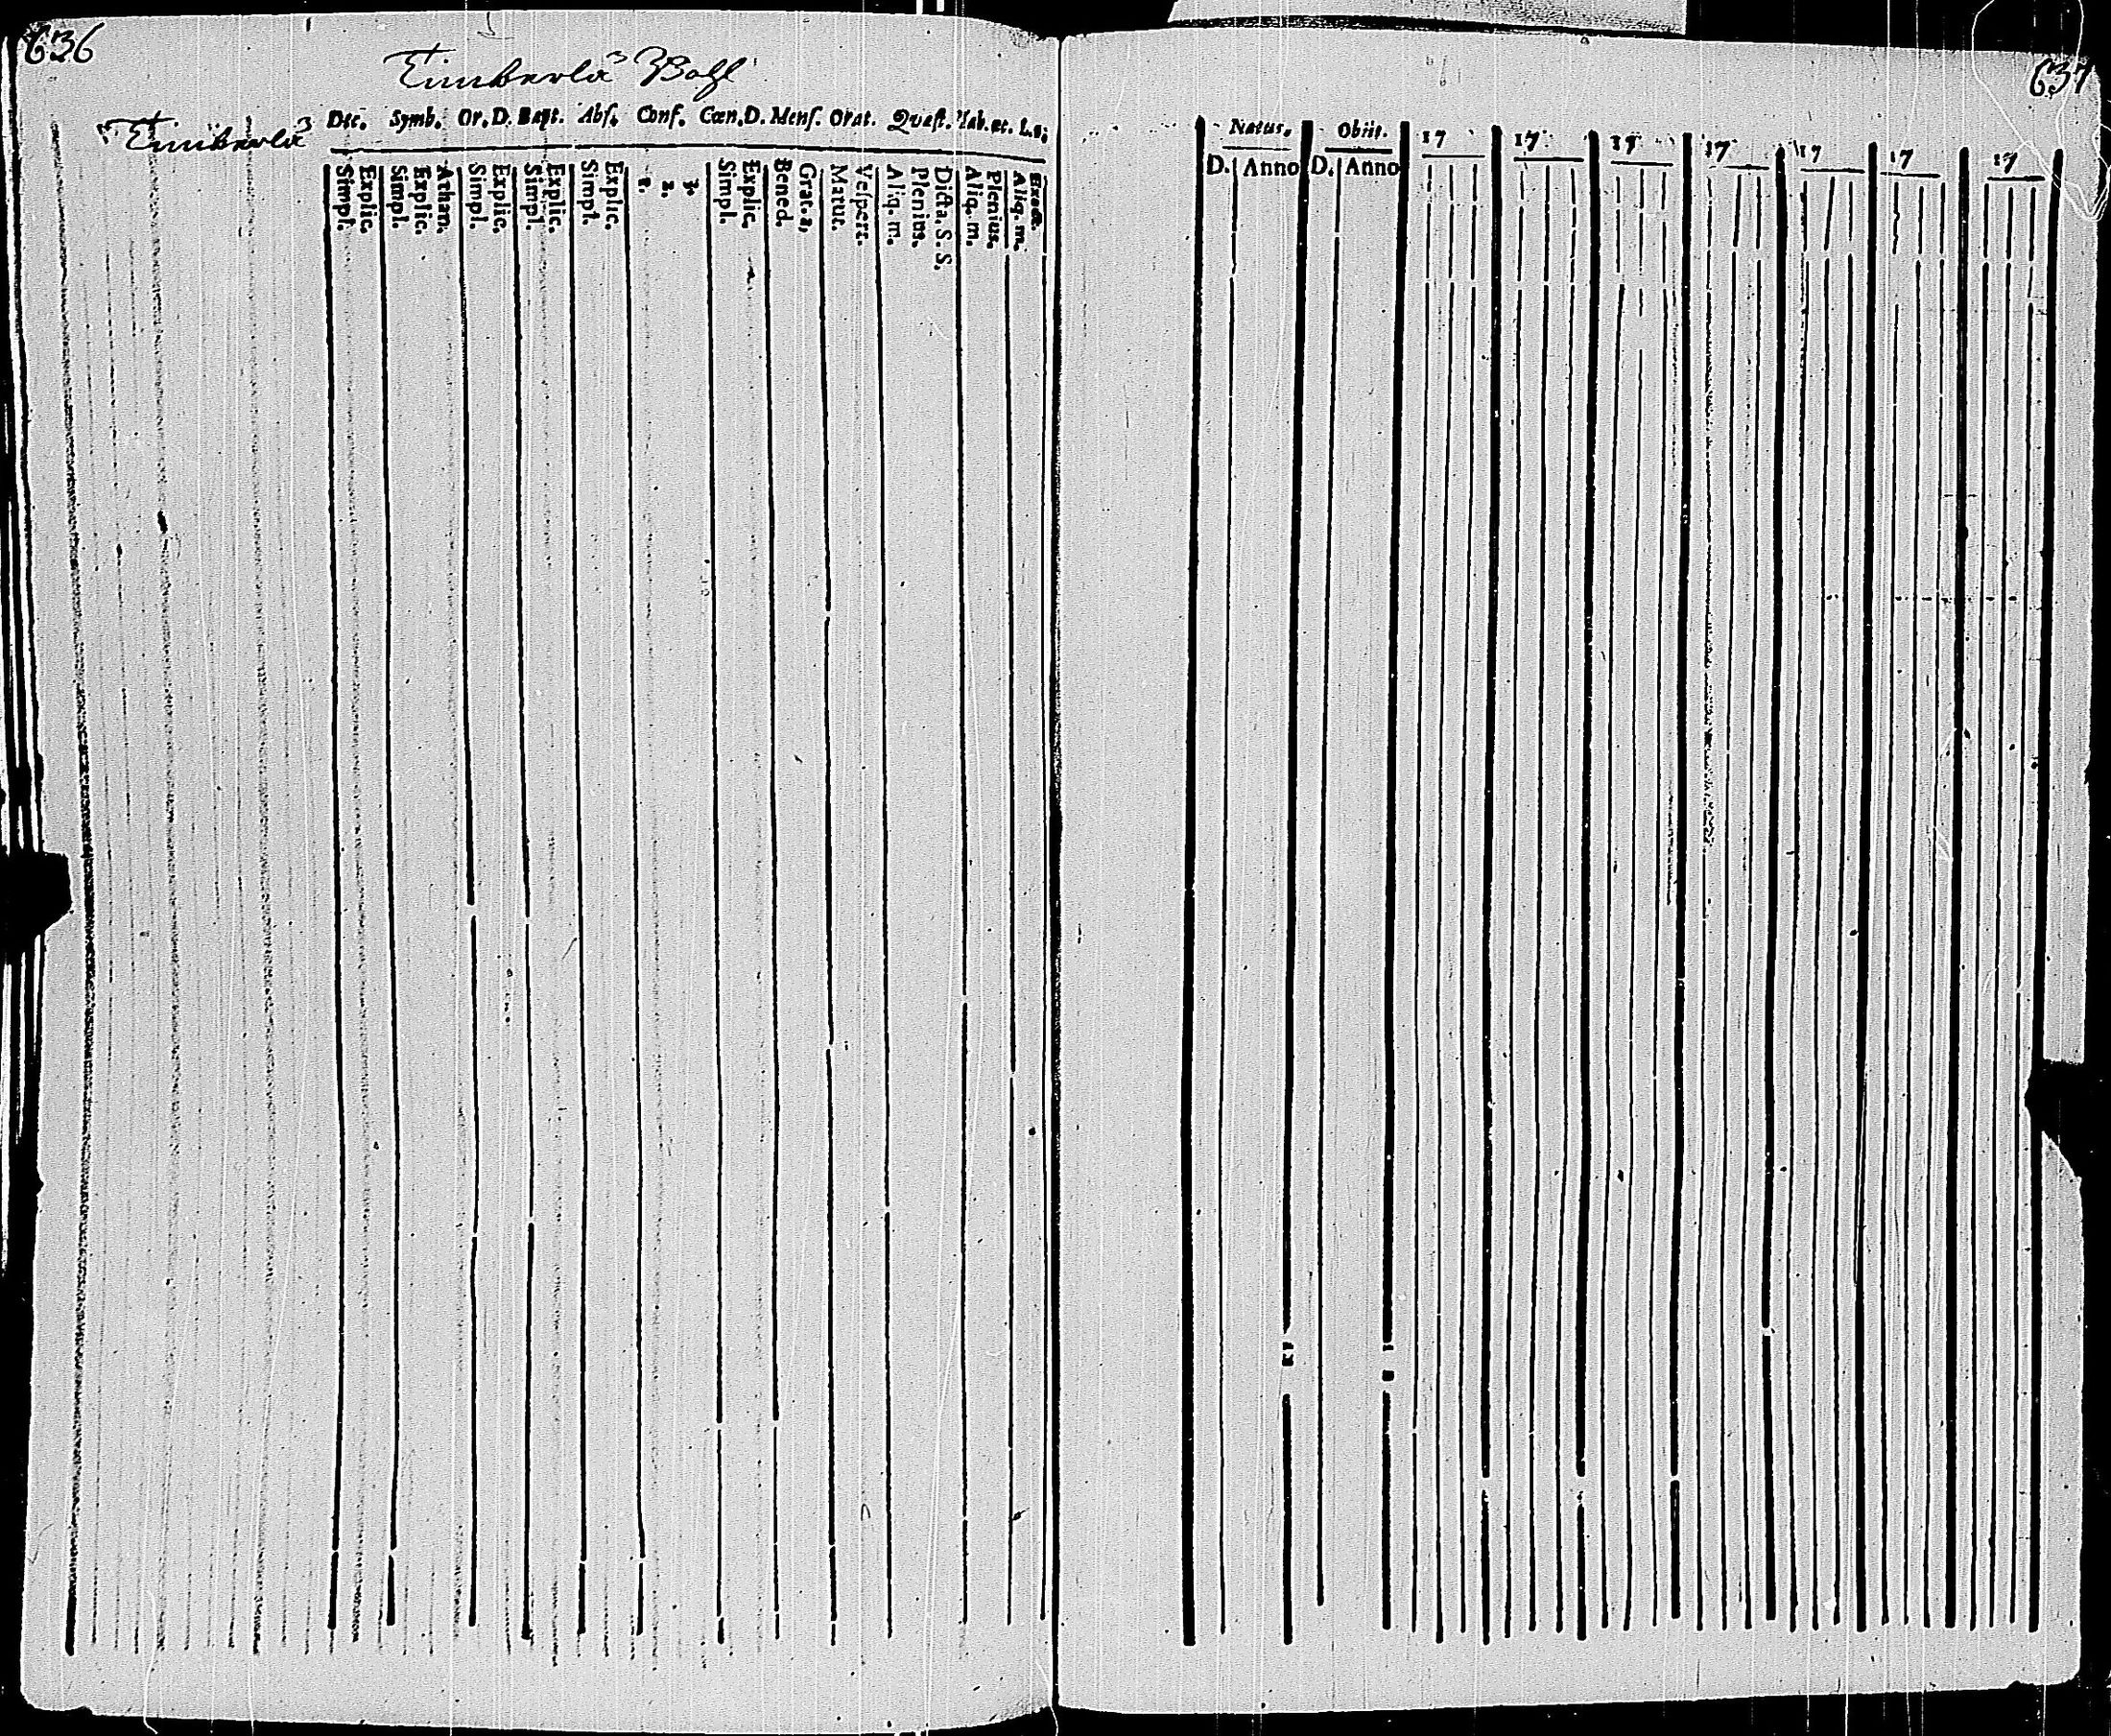 636
Timberla Bohl
Timberla
Dec. Symb. Or. D. Bapt. Abſ. Conf. Cœn. D. Menſ. Orat. Quæſt. Tab. œc. L. s.
Simpl. Explic. Simpl. Explic. Athan. Simpl. Explic. Simpl. Explic. Simpl. Explic. 1. 2. 3. Simpl. Explic. Bened. Grat. a. Matut. Veſpert. Aliq. m. Plenius. Dicta. S. S. Aliq. m. Plenius. Aliq. m. Exacte.
637
Natus. Obiit. 17 17 17 17 17 17 17
D. Anno D. Anno